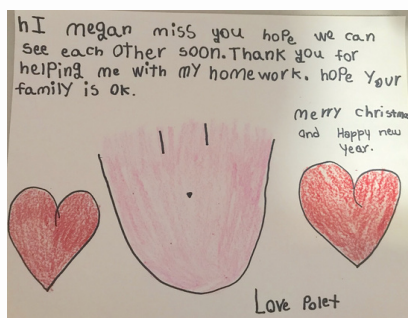 hI megan miss you hope we can
see each other soon. Thank you for
helping me with my homework. hope your
family is ok.
merry christmas
and Happy new
year.
Love Polet